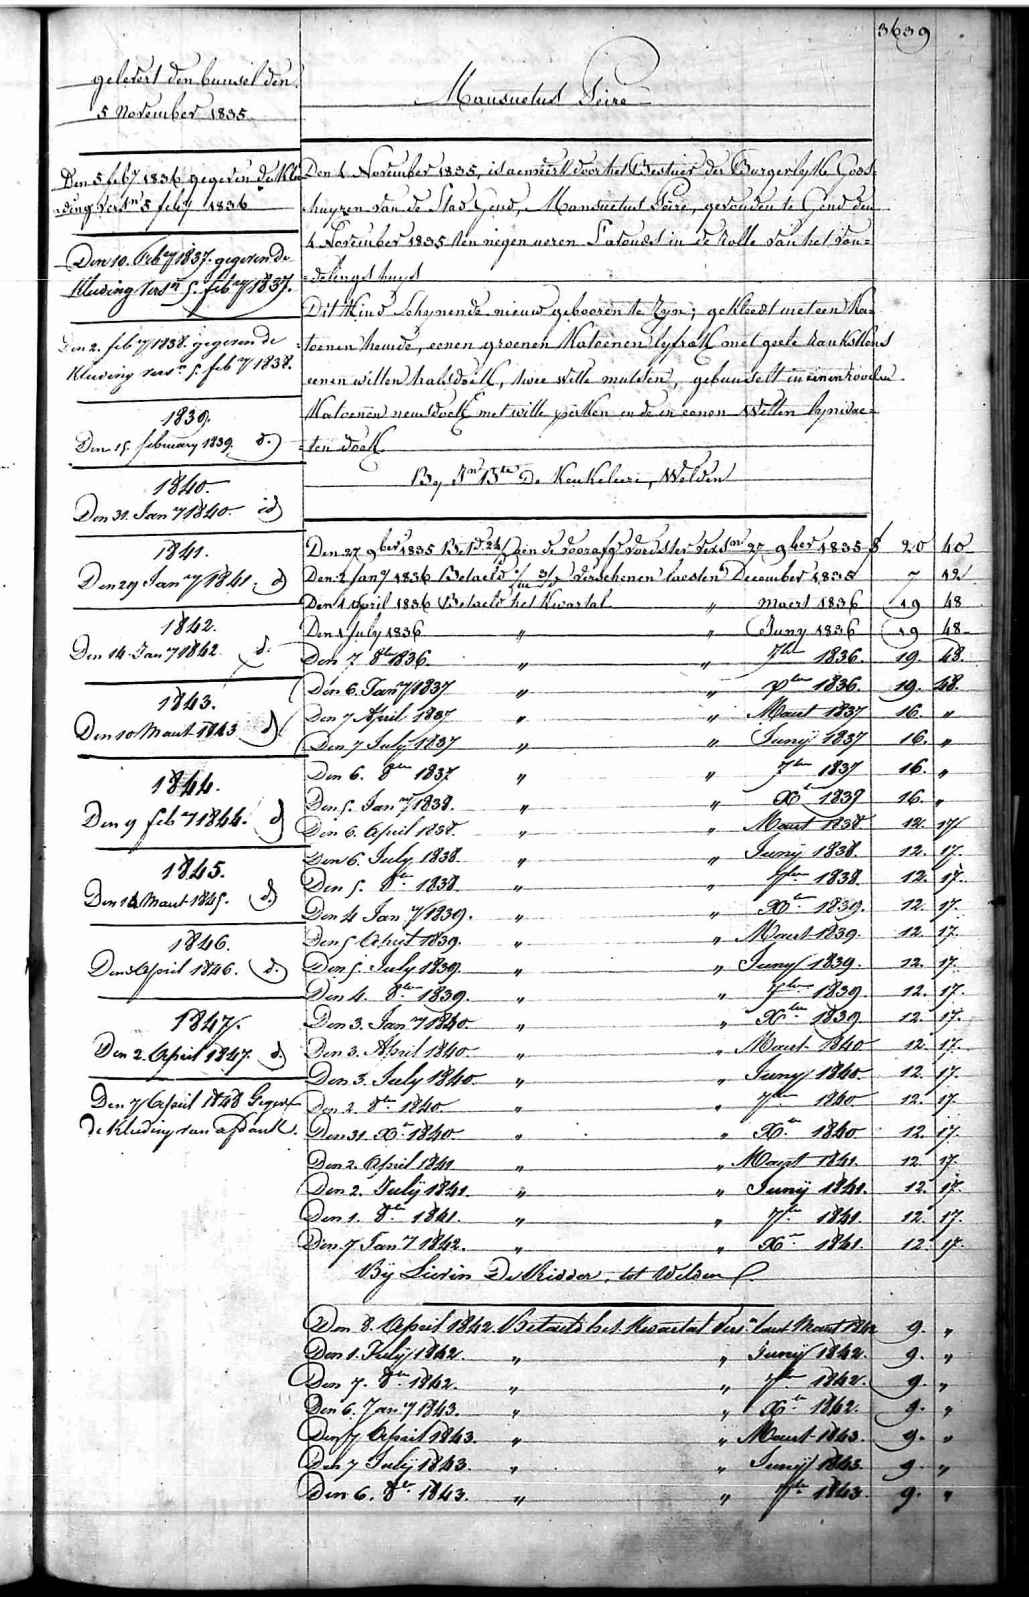 3639
gelevert den bunsel den
5 November 1835
Mansuetus Peire
Den 5 feby 1836 gegeven de kle
ding versn 5 feby 1836
Den 10. Feby 1837. gegeven de
kleeding versn 5. feby 1837.
Den 2. feby 1838. gegeven de
kleeding versn 5. feby 1838.
1839.
Den 15. february 1839. d.
1840.
Den 31. Jany 1840. id
1841.
Den 29 Jany 1841. d
1842.
Den 14 Jany 1842 d.
1843.
Den 10 Maart 1843 d
1844.
Den 9 feby 1844. d
1845.
Den 14 Maart 1845. d.
1846.
Den 3 April 1846. d.
1847.
Den 2. April 1847. d.
Den 7 April 1848 Gegev
de kleeding van afdank.
Den 4 November 1835, is aenveert door het Bestuer der Burgerlyke Gods
huyzen van de Stad Gend, Mansuetus Peire, gevonden te Gend den
4 November 1835 ten negen ueren s'avonds in de rolle van het von=
=delingshuys
Dit kind schynende nieuw geboren te zyn; gekleedt met een ka
toenen hemde, eenen groenen katoenen lyfrok met geele
eenen witten halsdoek, twee witte mutsen, gebunselt in eenen rooden
katoenen neusdoek met witte perken en de in eenen witten lynwae=
=ten doek
By Jn Bte De Keukeleire, Welden
Den 27 9ber 1835 aen de voorafgd voedster versn 27 9ber 1835 f 20 40
Den 2 Jany 1836 Betaeld verschenen laesten December 1835 7 12
Den 1 April 1836 Betaeld het kwartal " Maert 1836 19 48
Den 1 July 1836 " " Juny 1836 19 48
Den 7 8br 1836 " " 7ber 1836. 19. 48.
Den 6. Jany 1837 " " Xber 1836. 19. 48.
Den 7 April 1837 " " Maart 1837 16. "
Den 7 July 1837 " " Junij 1837 16. "
Den 6. 8ber 1837 " " 7ber 1837 16. "
Den 5. Jany 1838. " " Xr 1837 16. "
Den 6. April 1838. " " Maart 1838 12. 17
Den 6. July 1838 " " Junij 1838. 12. 17.
Den 5. 8br 1838 " " 7ber 1838 12. 17.
Den 4 Jany 1839. " " Xber 1839. 12. 17.
Den 5 April 1839. " " Maart 1839. 12. 17.
Den 5. July 1839. " " Juny 1839. 12. 17.
Den 4. 8ber 1839. " " 7ber 1839 12. 17.
Den 3. Jany 1840. " " Xber 1839 12. 17.
Den 3. April 1840. " " Maart 1840 12. 17.
Den 3. July 1840. " " Juny 1840. 12. 17.
Den 2. 8br 1840 " " 7ber 1840 12. 17.
Den 31. Xr 1840 " " Xr 1840 12. 17.
Den 2. April 1841 " " Maart 1841. 12. 17.
Den 2. July 1841. " " Junij 1841. 12. 17.
Den 1. 8br 1841. " " 7br 1841. 12. 17.
Den 7 Jany 1842. " " Xr 1841. 12. 17.
Bij Lievin De Ridder, tot Welden
Den 8. April 1842. Betaeld het kwartal vers laest Maart 1842 9. "
Den 1. Julij 1842. " " Junij 1842. 9. "
Den 7. 8br 1842. " " 7br 1842. 9. "
Den 6. Jany 1843. " " Xr 1842. 9. "
Den 7 April 1843. " " Maart 1843. 9. "
Den 7 Julij 1843. " " Junij 1843. 9. "
Den 6. 8r 1843. " " 7br 1843. 9. "